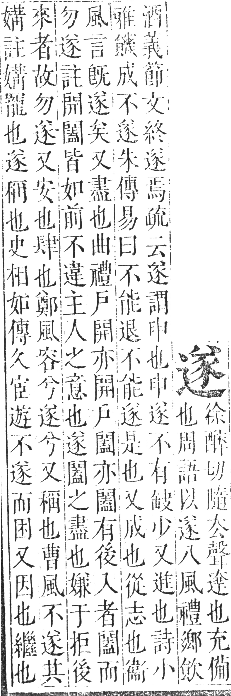 遂徐醉切隨去聲達也充備
也周語以遂八風禮鄉飲
酒義節文終遂焉疏云遂謂申也申遂不有缺少又進也詩小
雅饑成不遂朱傳易曰不能退不能遂是也又成也從志也衛
風言旣遂矣又盡也曲禮戶開亦開戶闔亦闔有後入者闔而
勿遂註開闔皆如前不違主人之意也遂闔之盡也嫌于拒後
來者故勿遂又安也肆也鄭風容兮遂兮又稱也曹風不遂其
媾註媾寵也遂稱也史相如傳久宦遊不遂而困又因也繼也